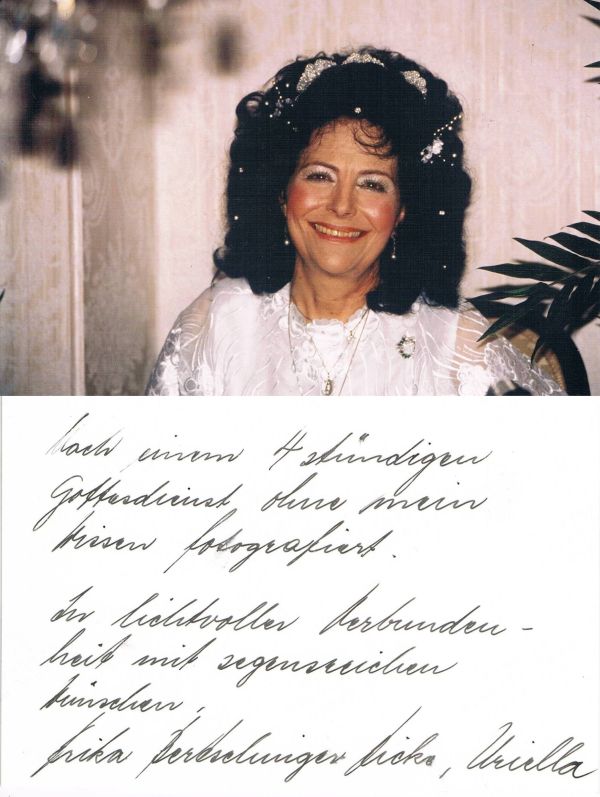 Nach einem 4 stündigen
Gottesdienst ohne mein
Wissen fotografiert.
In lichtvoller Verbunden-
heit mit segensreichen
Wünschen,
Erika Bertschinger Eicke, Uriella